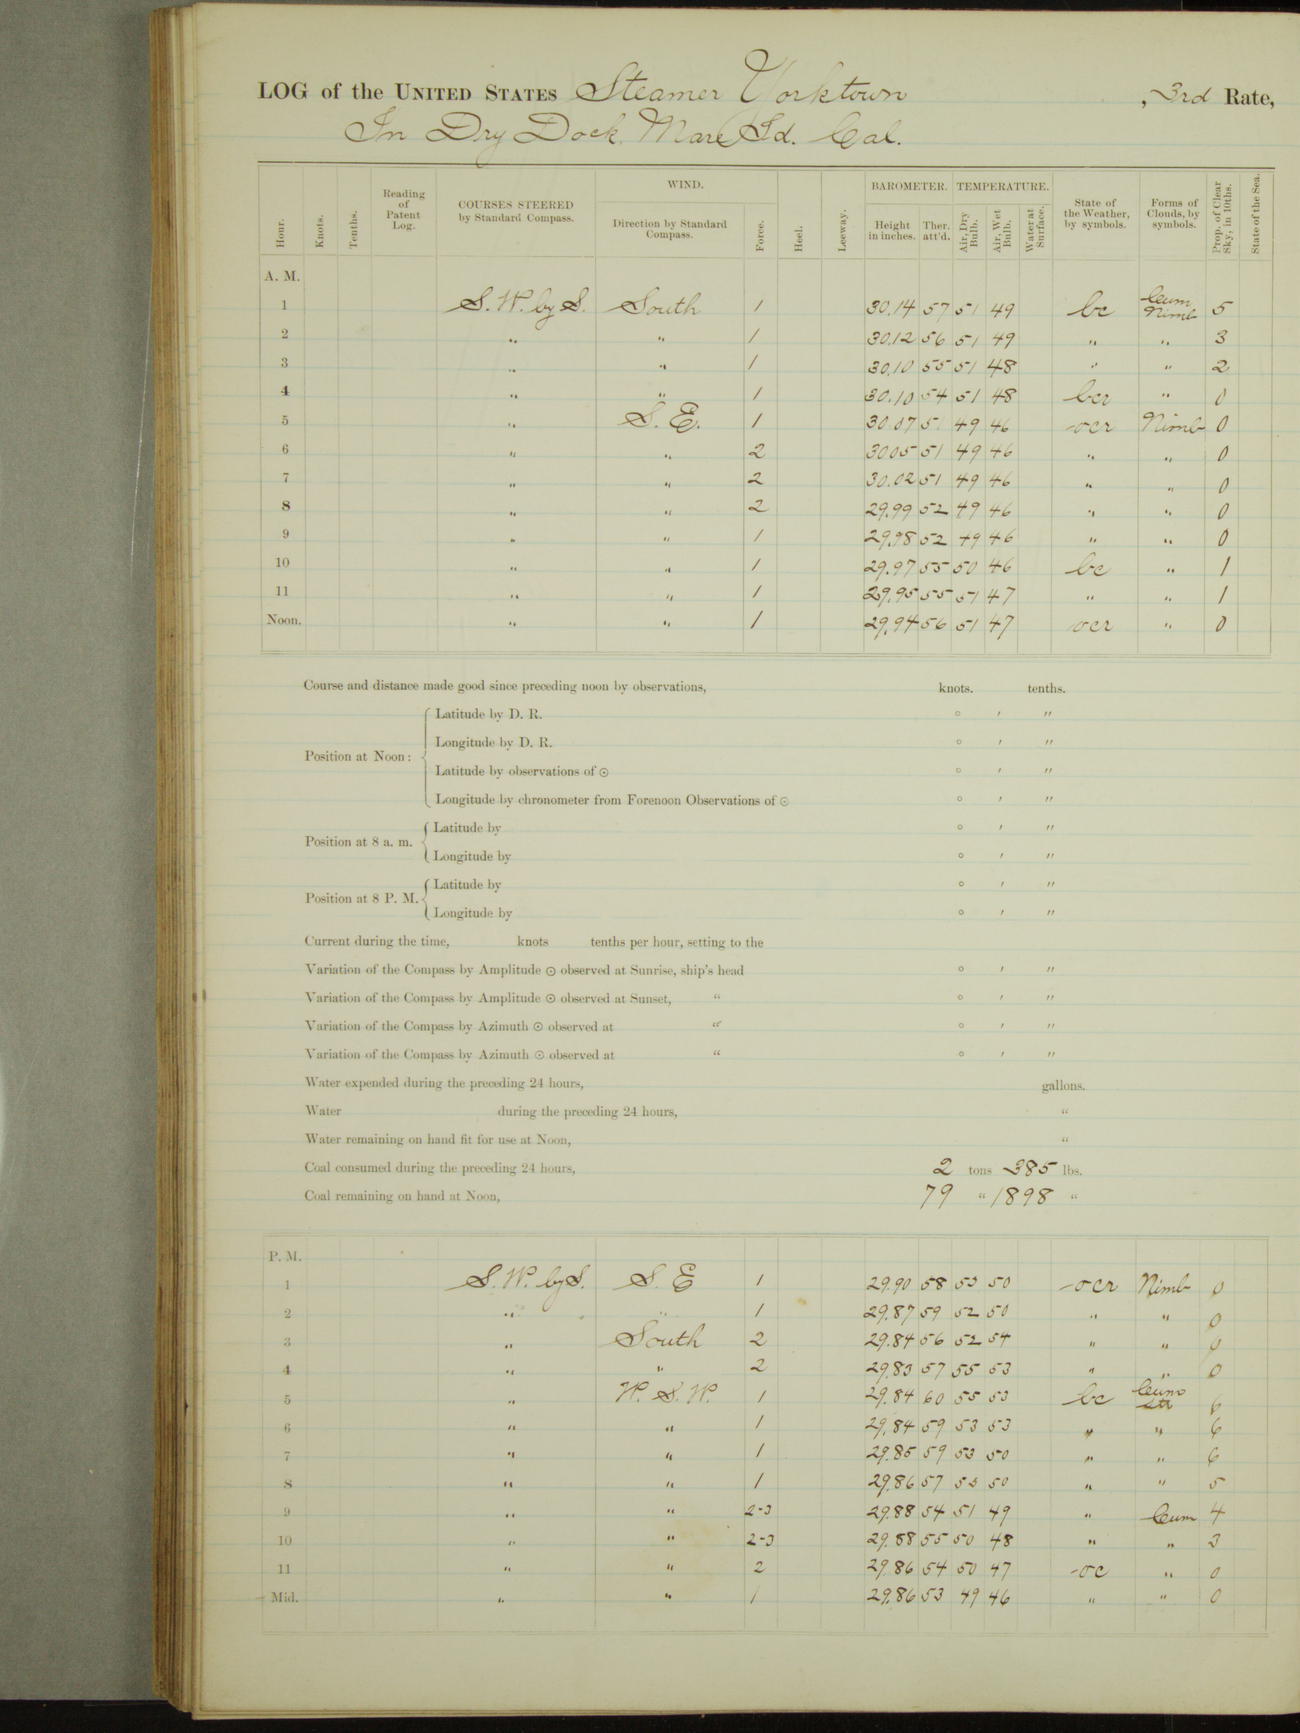 LOG of the UNITED STATES Steamer Yorktown , 3rd Rate,
In Dry Dock. Mare Id. Cal.
Hour. Knots. Tenths. Reading of Patent Log. COURSES STEERED by Standard Compass. WIND. Direction by Standard Compass. Force. Heel. Leeway. BAROMETER. Height in inches. Ther. att'd. TEMPERATURE. Air, Dry Bulb. Air, Wet Bulb. Water at Surface. State of the Weather, by symbols. Forms of Clouds, by symbols. Prop. of Clear Sky, in 10ths. State of the Sea.
A. M.
1 S. W. by S. South 1 30.14 57 51 49 bc Cum Nimb 5
2 " " 1 30.12 56 51 49 " " 3
3 " " 1 30.10 55 51 48 " " 2
4 " " 1 30.10 54 51 48 bcr " 0
5 " S. E. 1 30.07 51 49 46 ocr Nimb 0
6 " " 2 30 05 51 49 46 " " 0
7 " " 2 30.02 51 49 46 " " 0
8 " " 2 29.99 52 49 46 " " 0
9 " " 1 29.98 52 49 46 " " 0
10 " " 1 29.97 55 50 46 bc " 1
11 " " 1 29.95 55 51 47 " " 1
Noon. " " 1 29.94 56 51 47 ocr " 0
Course and distance made good since preceding noon by observations, knots. tenths.
Position at Noon:
Latitude by D. R. ° ′ ″
Longitude by D. R. ° ′ ″
Latitude by observations of ☉ ° ′ ″
Longitude by chronometer from Forenoon Observations of ☉ ° ′ ″
Position at 8 a. m.
Latitude by ° ′ ″
Longitude by ° ′ ″
Position at 8 P. M.
Latitude by ° ′ ″
Longitude by ° ′ ″
Current during the time, knots tenths per hour, setting to the
Variation of the Compass by Amplitude ☉ observed at Sunrise, ship's head ° ′ ″
Variation of the Compass by Amplitude ☉ observed at Sunset, " ° ′ ″
Variation of the Compass by Azimuth ☉ observed at " ° ′ ″
Variation of the Compass by Azimuth ☉ observed at " ° ′ ″
Water expended during the preceding 24 hours, gallons.
Water during the preceding 24 hours, "
Water remaining on hand fit for use at Noon, "
Coal consumed during the preceding 24 hours, 2 tons 385 lbs.
Coal remaining on hand at Noon, 79 " 1898 "
P. M.
1 S. W. by S. S. E 1 29.90 58 53 50 ocr Nimb 0
2 " " 1 29.87 59 52 50 " " 0
3 " South 2 29.84 56 52 54 " " 0
4 " " 2 29.83 57 55 53 " " 0
5 " W. S. W. 1 29.84 60 55 53 bc Cum Str 6
6 " " 1 29.84 59 53 53 " " 6
7 " " 1 29.85 59 53 50 " " 6
8 " " 1 29.86 57 53 50 " " 5
9 " " 2-3 29.88 54 51 49 " Cum 4
10 " " 2-3 29.88 55 50 48 " " 3
11 " " 2 29.86 54 50 47 oc " 0
Mid. " " 1 29.86 53 49 46 " " 0